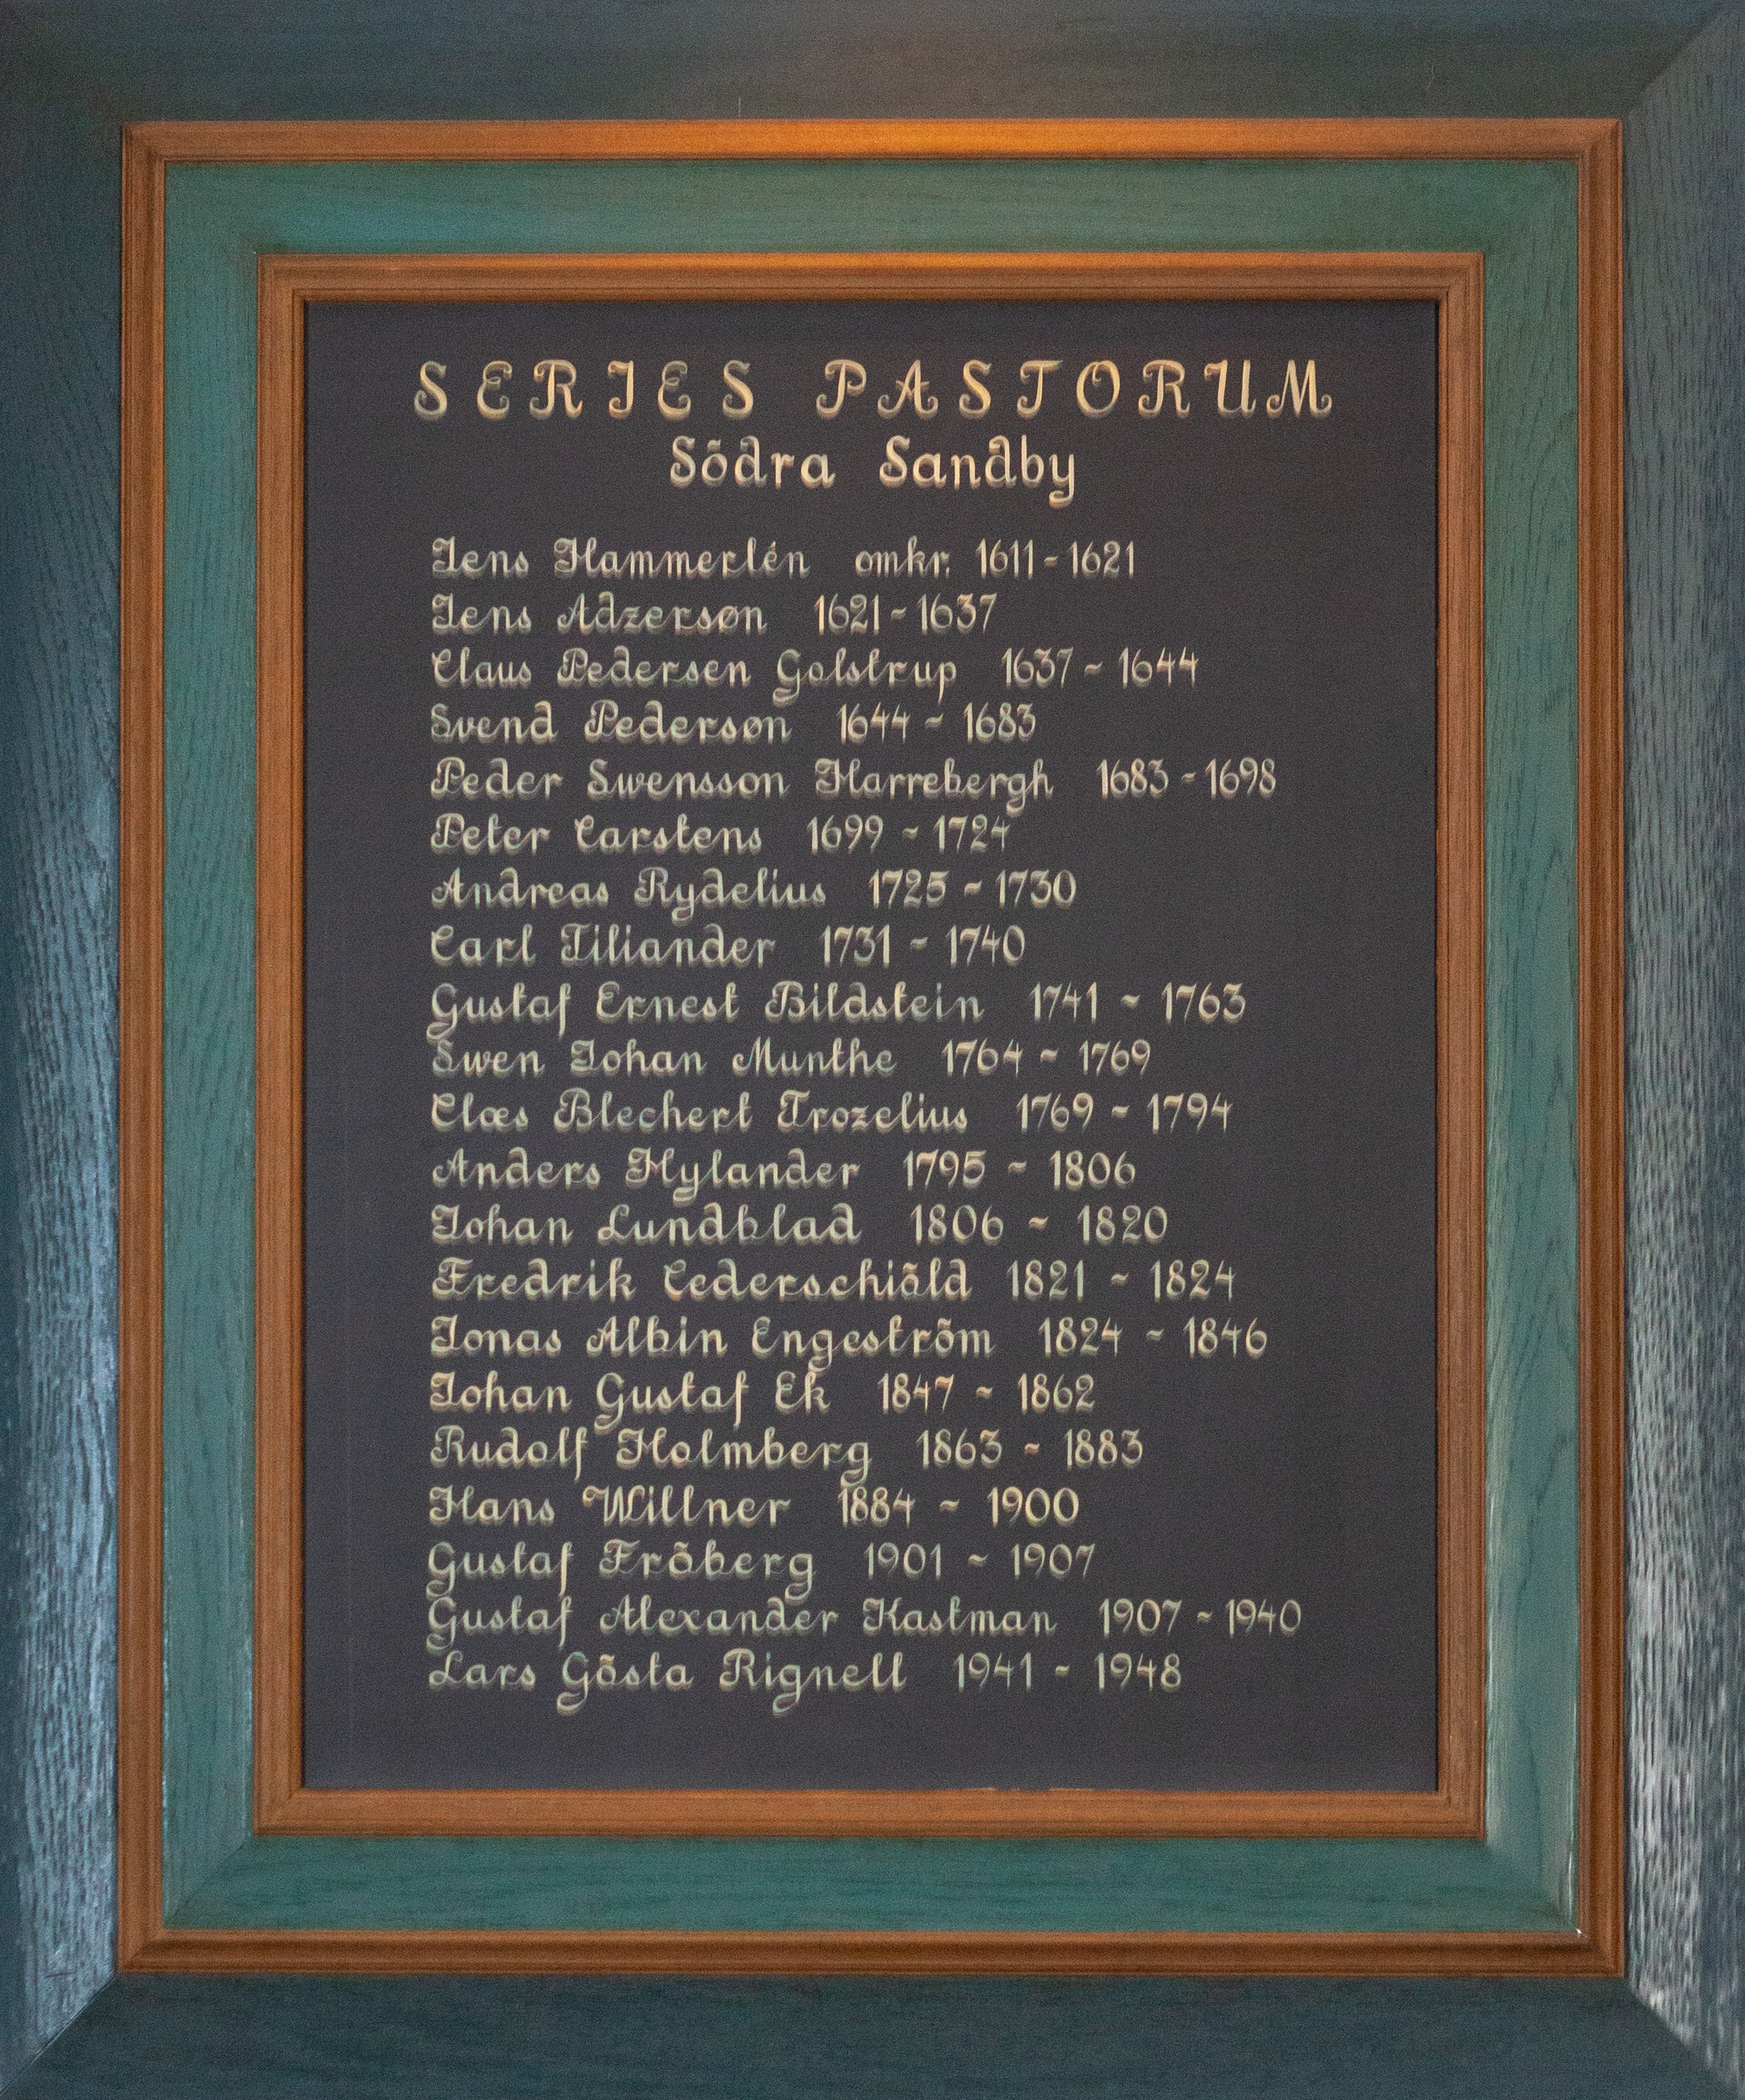 SERIES PASTORUM
Södra Sandby
Jens Hammerlén omkr. 1611-1621
Jens Adzersøn 1621-1637
Claus Pedersen Golstrup 1637-1644
Svend Pedersøn 1644-1683
Peder Swensson Harrebergh 1683-1698
Peter Carstens 1699-1724
Andreas Rydelius 1725-1730
Carl Tiliander 1731-1740
Gustaf Ernest Bildstein 1741-1763
Swen Johan Munthe 1764-1769
Clæs Blechert Trozelius 1769-1794
Anders Hylander 1795-1806
Johan Lundblad 1806-1820
Fredrik Cederschiöld 1821-1824
Jonas Albin Engeström 1824-1846
Johan Gustaf Ek 1847-1862
Rudolf Holmberg 1863-1883
Hans Willner 1884-1900
Gustaf Fröberg 1901-1907
Gustaf Alexander Kastman 1907-1940
Lars Gösta Rignell 1941-1948